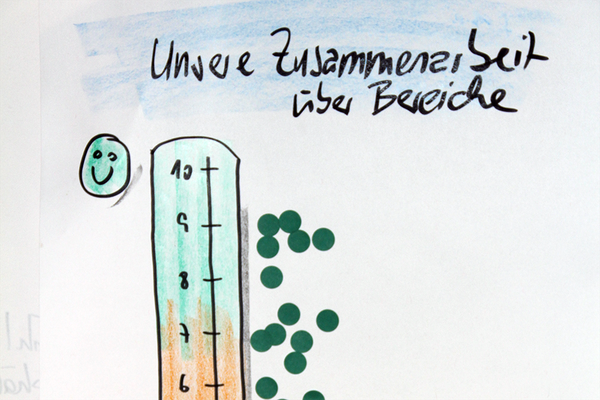 Unsere Zusammenarbeit
über Bereiche
10
9
8
7
6